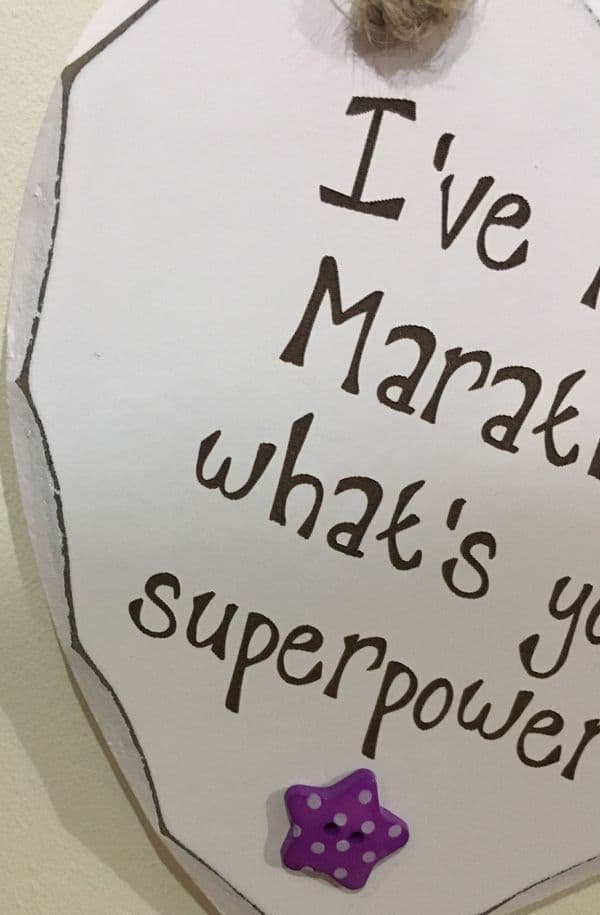 I've
Marat
what's yo
superpower